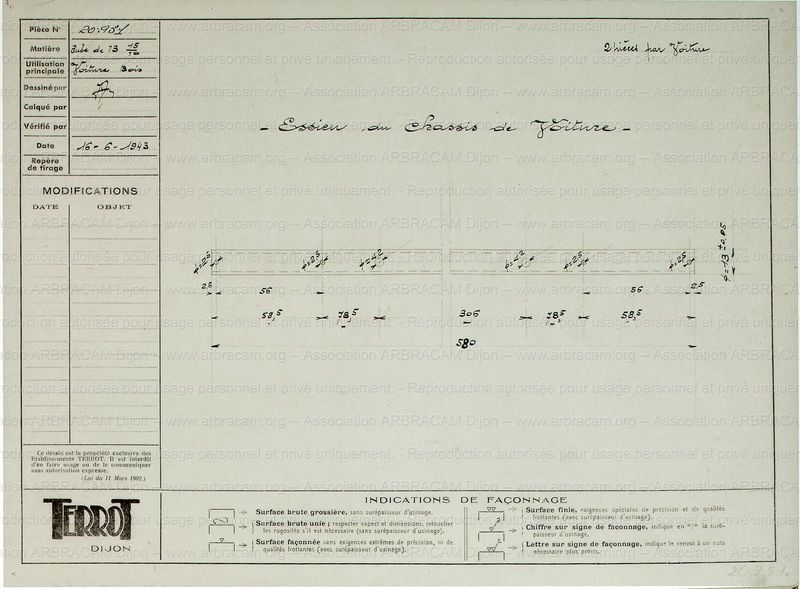 Pièce N° 20.951
Matière Tube de 13 15/10
Utilisation principale Voiture Bois
Dessiné par
Calqué par
Vérifié par
Date 16-6-1943
Repère de tirage
MODIFICATIONS
DATE OBJET
2 pièces par Voiture
- Essieu du Chassis de Voiture -
ø=2,5 ø=2,5 ø=4,2 ø=4,2 ø=2,5 ø=2,5 ø=13 ± 0,05
2,5 56 56 2,5
58,5 78,5 306 78,5 58,5
580
Ce dessin est la propriété exclusive des
Etablissements TERROT. Il est interdit
d'en faire usage ou de le communiquer
sans autorisation expresse.
(Loi du 11 Mars 1902.)
TERROT
DIJON
INDICATIONS DE FAÇONNAGE
Surface brute grossière, sans surépaisseur d'usinage.
Surface brute unie ; respecter aspect et dimensions, retoucher
les rugosités s'il est nécessaire (sans surépaisseur d'usinage).
Surface façonnée sans exigences extrêmes de précision, ni de
qualités frottantes (avec surépaisseur d'usinage).
Surface finie, exigences spéciales de précision et de qualités
frottantes (avec surépaisseur d'usinage).
Chiffre sur signe de façonnage, indique en "/" la surépaisseur d'usinage.
Lettre sur signe de façonnage, indique le renvoi à un nota
nécessaire plus précis.
20.951
www.arbracam.org -- Association ARBRACAM Dijon -- Reproduction autorisée pour usage personnel et privé uniquement.